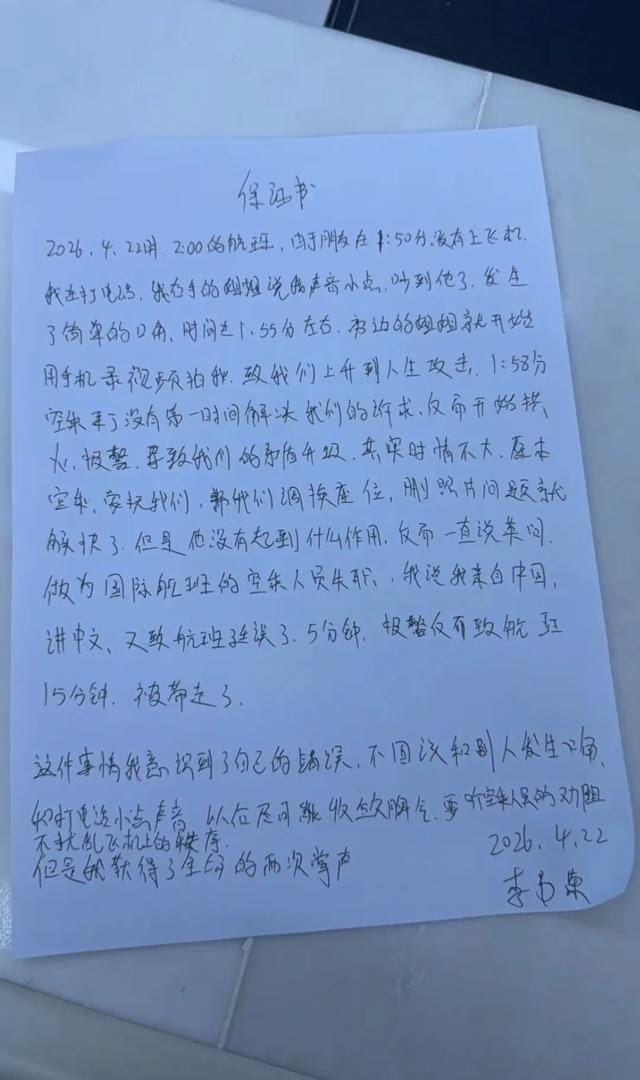 保证书
2026.4.22日.2:00的航班,由于朋友在1:50分没有上飞机.
我在打电话,我右手的姐姐说我声音小点.吵到他了.发生
了简单的口角,时间在1.55分左右.旁边的姐姐就开始
用手机录视频拍我.致我们上升到人生攻击.1:58分
空乘来了没有第一时间解决我们的诉求.反而开始拱
火.报警.导致我们的矛盾升级.其实时情不大.原本
空乘,安扶我们,帮我们调换座位,删照片问题就
解决了.但是他没有起到什么作用.反而一直说英问.
做为国际航班的空乘人员失职.,我说我来自中国,
讲中文.又致航班延误了.5分钟.报警仅有致航班
15分钟.被带走了.
这件事情我意识到了自己的错误.不因该和别人发生口角、
和打电话小点声音.以后尽可能收敛脾气.要听空乘人员的劝阻
不扰乱飞机上的秩序.
但是我获得了全场的两次掌声
2026.4.22